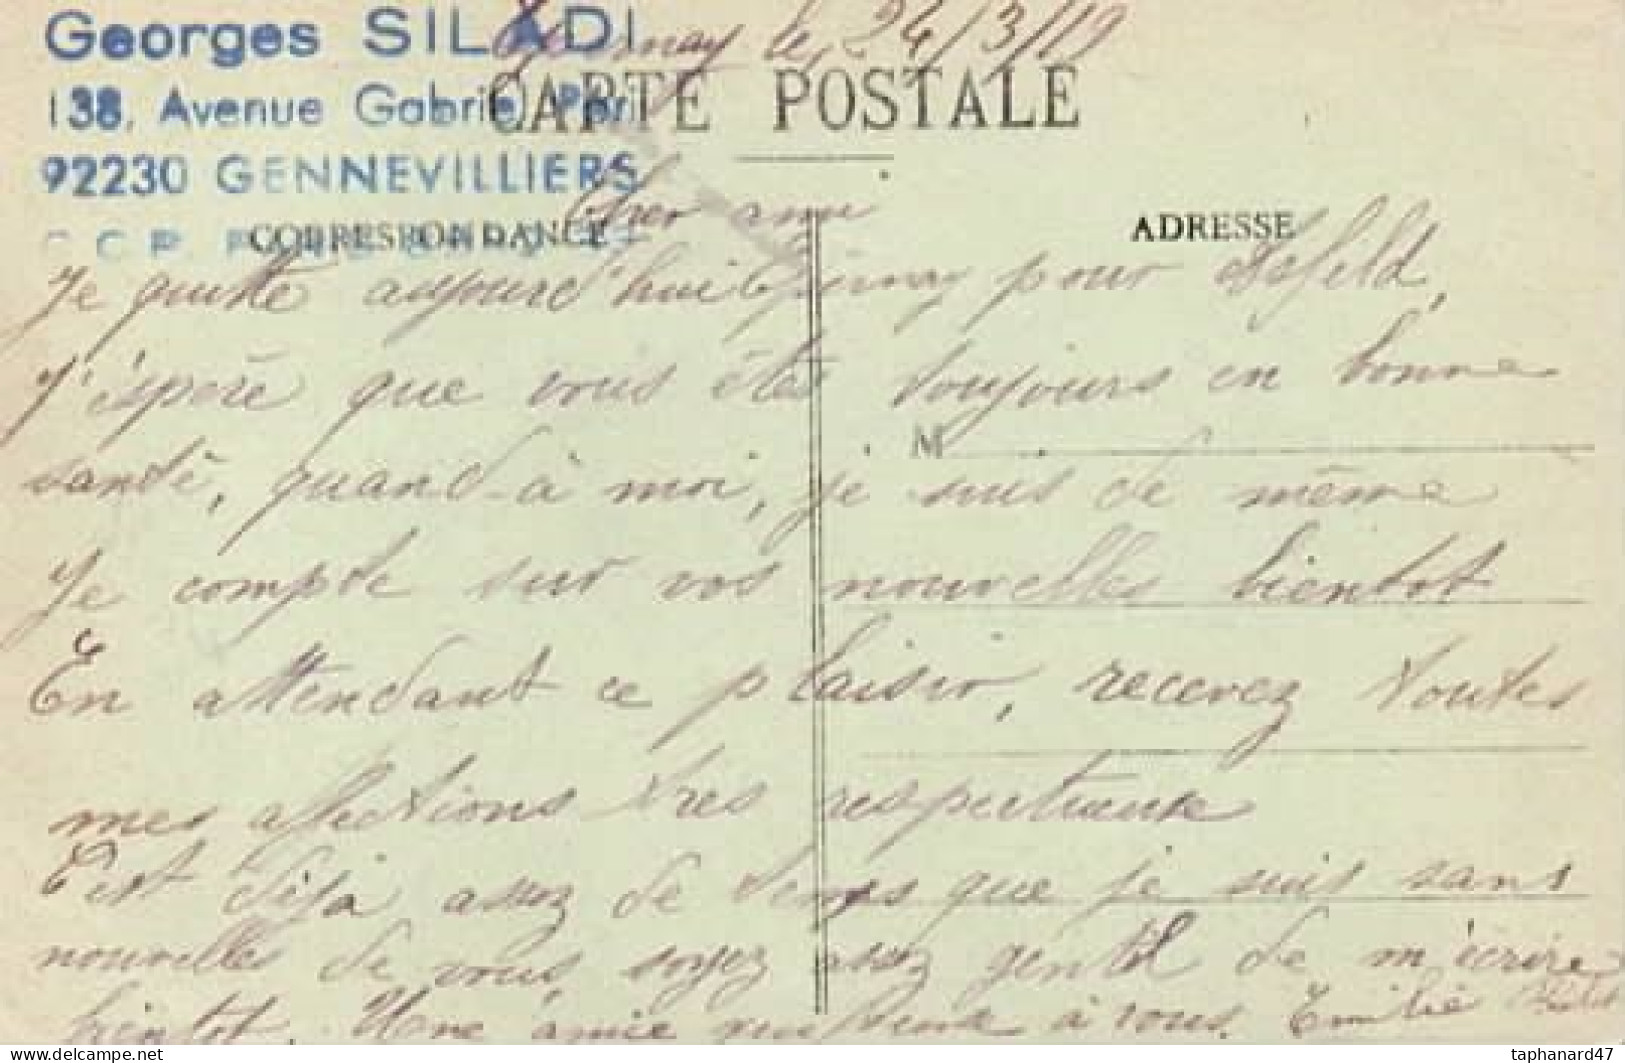 Georges SILADI
138, Avenue Gabriel Péri
92230 GENNEVILLIERS
Epernay le, 24/3/19
CARTE POSTALE
CORRESPONDANCE
ADRESSE
Cher ami
Je quitte aujourd'hui Epernay pour Asfeld,
J'éspère que vous êtes toujours en bonne
M
santé, quand-à moi, je suis de même
Je compte sur vos nouvelles bientot
En attendant ce plaisir, recevez toutes
mes affections très respectueuse
C'est déja assez de temps que je suis sans
nouvelles de vous, soyez assez gentil de m'écrire
bientot. Une amie à vous. Emilie
taphanard47